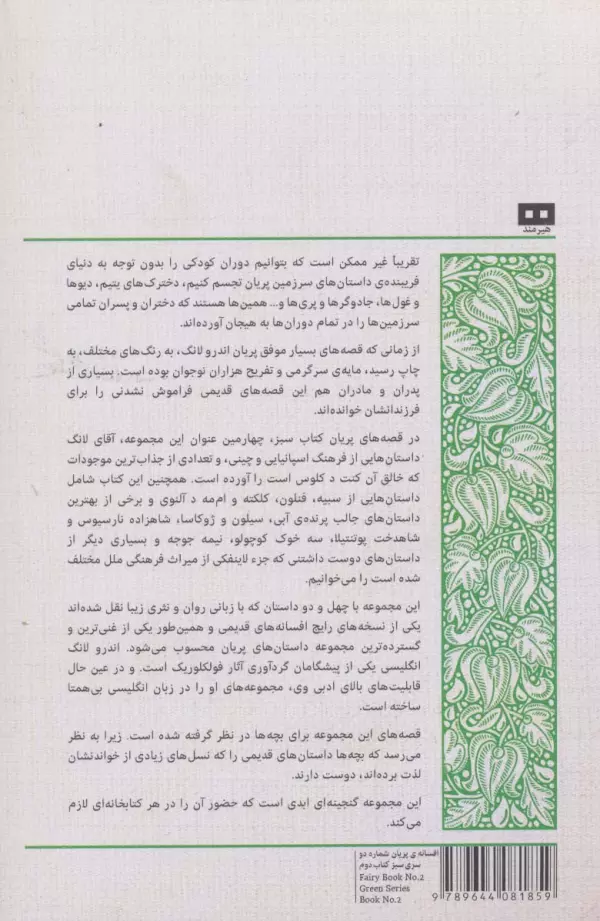 هیرمند
تقریباً غیر ممکن است که بتوانیم دوران کودکی را بدون توجه به دنیای
فریبنده‌ی داستان‌های سرزمین پریان تجسم کنیم، دخترک‌های یتیم، دیوها
و غول‌ها، جادوگرها و پری‌ها و... همین‌ها هستند که دختران و پسران تمامی
سرزمین‌ها را در تمام دوران‌ها به هیجان آورده‌اند.
از زمانی که قصه‌های بسیار موفق پریان اندرو لانگ، به رنگ‌های مختلف، به
چاپ رسید، مایه‌ی سرگرمی و تفریح هزاران نوجوان بوده است. بسیاری از
پدران و مادران هم این قصه‌های قدیمی فراموش نشدنی را برای
فرزندانشان خوانده‌اند.
در قصه‌های پریان کتاب سبز، چهارمین عنوان این مجموعه، آقای لانگ
داستان‌هایی از فرهنگ اسپانیایی و چینی، و تعدادی از جذاب‌ترین موجودات
که خالق آن کنت د کلوس است را آورده است. همچنین این کتاب شامل
داستان‌هایی از سبیه، فنلون، کلکته و ام‌مه د آلنوی و برخی از بهترین
داستان‌های جالب پرنده‌ی آبی، سیلون و ژوکاسا، شاهزاده نارسیوس و
شاهدخت پوتنتیلا، سه خوک کوچولو، نیمه جوجه و بسیاری دیگر از
داستان‌های دوست داشتنی که جزء لاینفکی از میراث فرهنگی ملل مختلف
شده است را می‌خوانیم.
این مجموعه با چهل و دو داستان که با زبانی روان و نثری زیبا نقل شده‌اند
یکی از نسخه‌های رایج افسانه‌های قدیمی و همین‌طور یکی از غنی‌ترین و
گسترده‌ترین مجموعه داستان‌های پریان محسوب می‌شود. اندرو لانگ
انگلیسی یکی از پیشگامان گردآوری آثار فولکلوریک است. و در عین حال
قابلیت‌های بالای ادبی وی، مجموعه‌های او را در زبان انگلیسی بی‌همتا
ساخته است.
قصه‌های این مجموعه برای بچه‌ها در نظر گرفته شده است. زیرا به نظر
می‌رسد که بچه‌ها داستان‌های قدیمی را که نسل‌های زیادی از خواندنشان
لذت برده‌اند، دوست دارند.
این مجموعه گنجینه‌ای ابدی است که حضور آن را در هر کتابخانه‌ای لازم
می‌کند.
افسانه‌ی پریان شماره دو
سری سبز کتاب دوم
Fairy Book No.2
Green Series
Book No.2
9 789644 081859